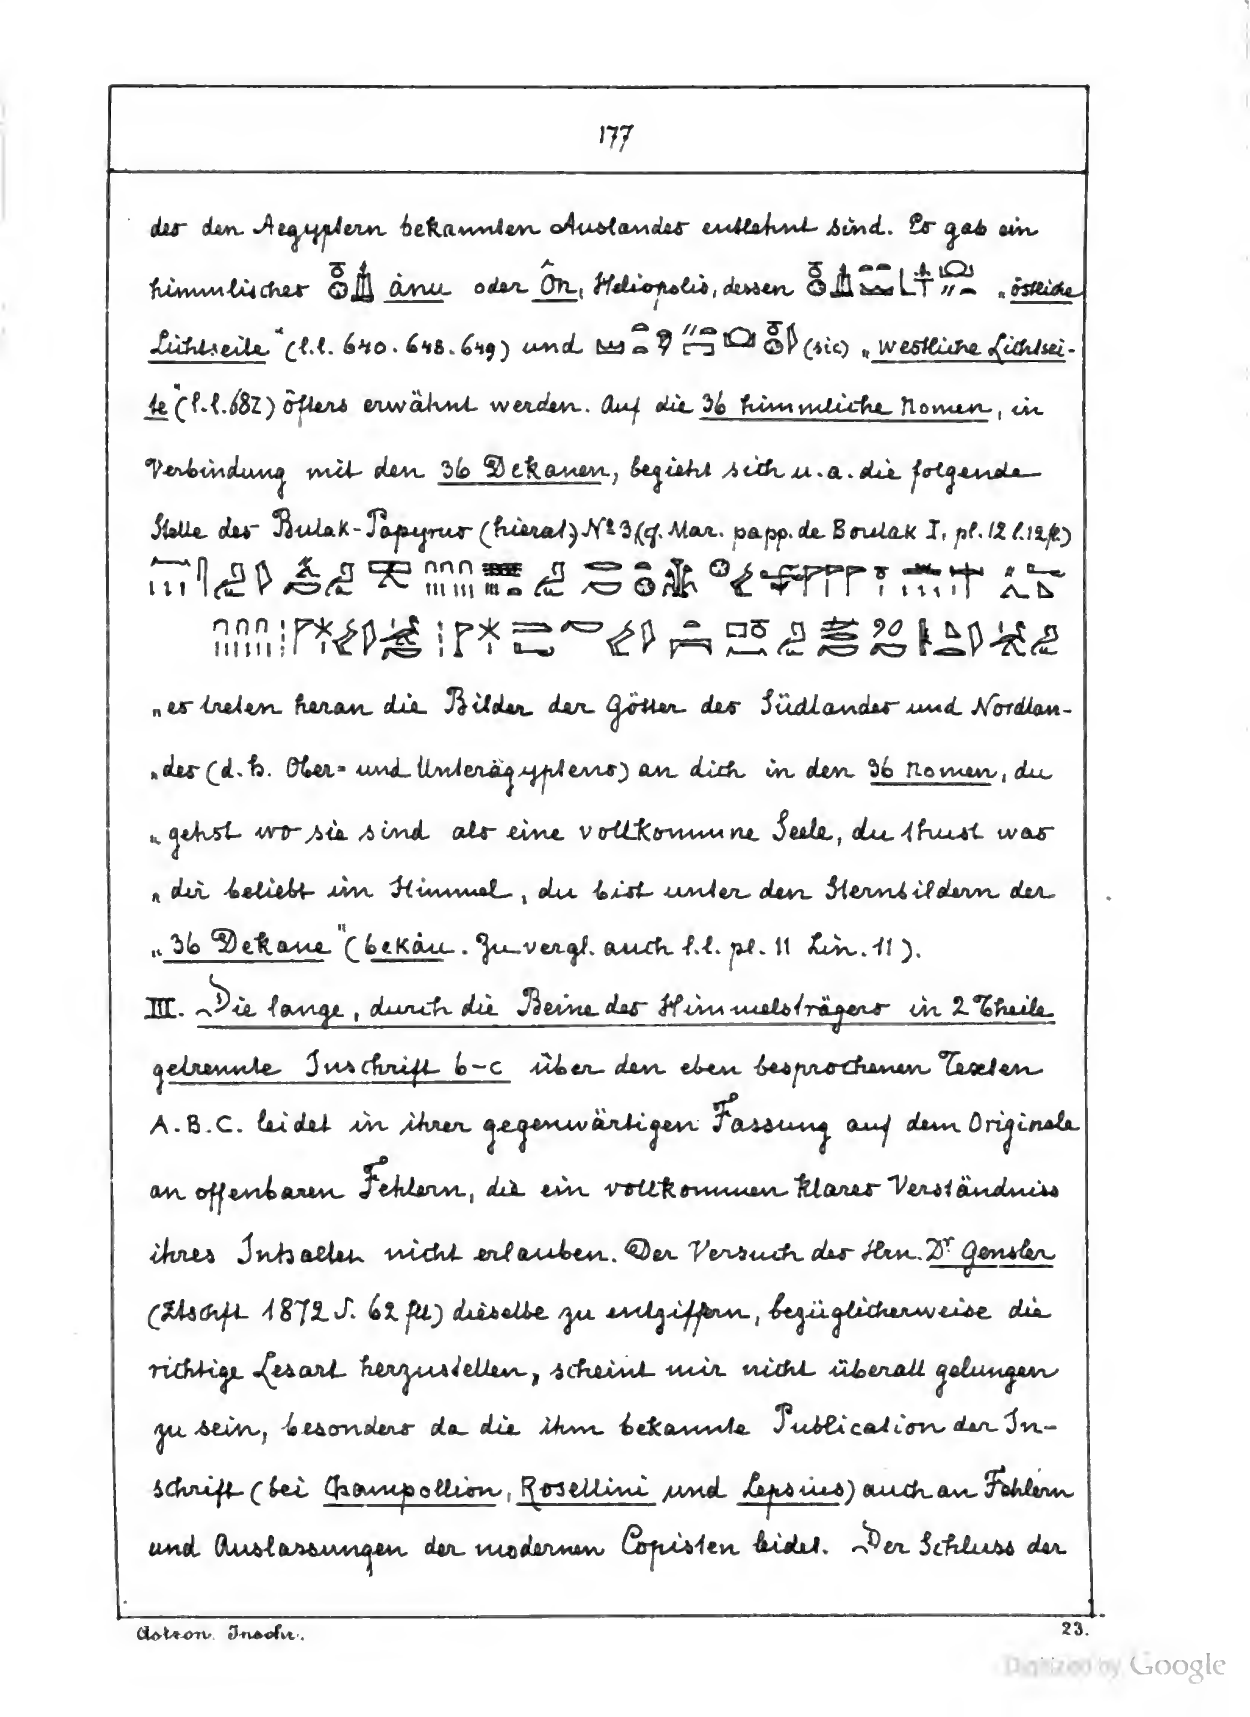 177
des den Aegyptern bekannten Auslandes entlehnt sind. Es gab ein
himmlisches ånu oder Ôn, Heliopolis, dessen „östliche
Lichtseite“ (l.l. 640. 648. 649) und (sic) „westliche Lichtsei-
te“ (l.l. 682) öfters erwähnt werden. Auf die 36 himmliche Nomen, in
Verbindung mit den 36 Dekanen, bezieht sich u.a. die folgende
Stelle des Bulak-Papyrus (hierat) № 3 (cf. Mar. papp. de Boulak I, pl. 12 l. 12 f.)
„es treten heran die Bilder der Götter des Südlandes und Nordlan-
„des (d.h. Ober- und Unterägyptens) an dich in den 36 Nomen, du
„gehst wo sie sind als eine vollkommne Seele, du thust was
„dir beliebt im Himmel, du bist unter den Sternbildern der
„36 Dekane“ (bekåu. Zu vergl. auch l.l. pl. 11 Lin. 11).
III. Die lange, durch die Beine des Himmelsträgers in 2 Theile
getrennte Inschrift b-c über den eben besprochenen Texten
A.B.C. leidet in ihrer gegenwärtigen Fassung auf dem Originale
an offenbaren Fehlern, die ein vollkommen klares Verständniss
ihres Inhaltes nicht erlauben. Der Versuch des Hrn. Dr Gensler
(Ztschft 1872 S. 62 fll) dieselbe zu entziffern, bezüglicherweise die
richtige Lesart herzustellen, scheint mir nicht überall gelungen
zu sein, besonders da die ihm bekannte Publication der In-
schrift (bei Champollion, Rosellini und Lepsius) auch an Fehlern
und Auslassungen der modernen Copisten leidet. Der Schluss der
Astron. Inschr. 23.
Digitized by Google